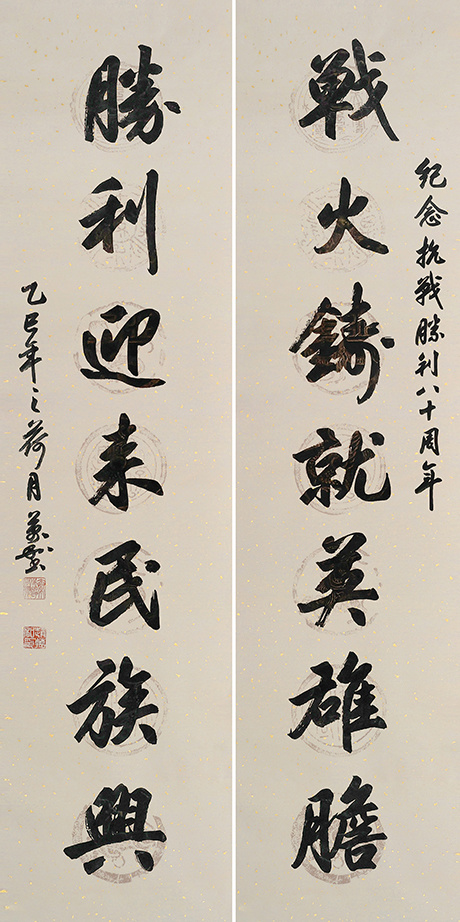 紀念抗戰勝利八十周年
戰火鑄就英雄膽
勝利迎来民族興
乙巳年之荷月